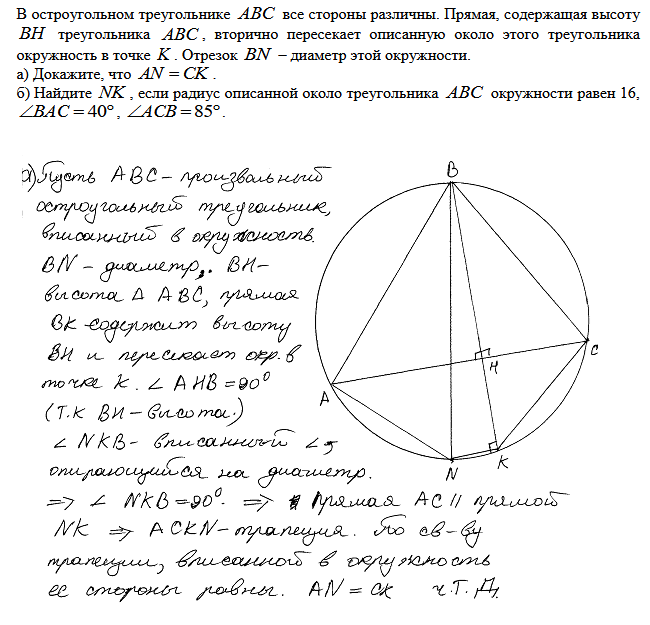 В остроугольном треугольнике ABC все стороны различны. Прямая, содержащая высоту
BH треугольника ABC, вторично пересекает описанную около этого треугольника
окружность в точке K. Отрезок BN – диаметр этой окружности.
а) Докажите, что AN = CK.
б) Найдите NK, если радиус описанной около треугольника ABC окружности равен 16,
∠BAC = 40°, ∠ACB = 85°.
а) Пусть ABC – произвольный
остроугольный треугольник,
вписанный в окружность.
BN – диаметр,. BH –
высота Δ ABC, прямая
BK содержит высоту
BH и пересекает окр. в
точке K. ∠ AHB = 90°
(т.к BH – высота.)
∠ NKB – вписанный ∠,
опирающийся на диаметр.
=> ∠ NKB = 90°. => Прямая AC || прямой
NK => ACKN – трапеция. По св-ву
трапеции, вписанной в окружность
ее стороны равны. AN = CK ч.т.д.
B
A
H
C
N
K